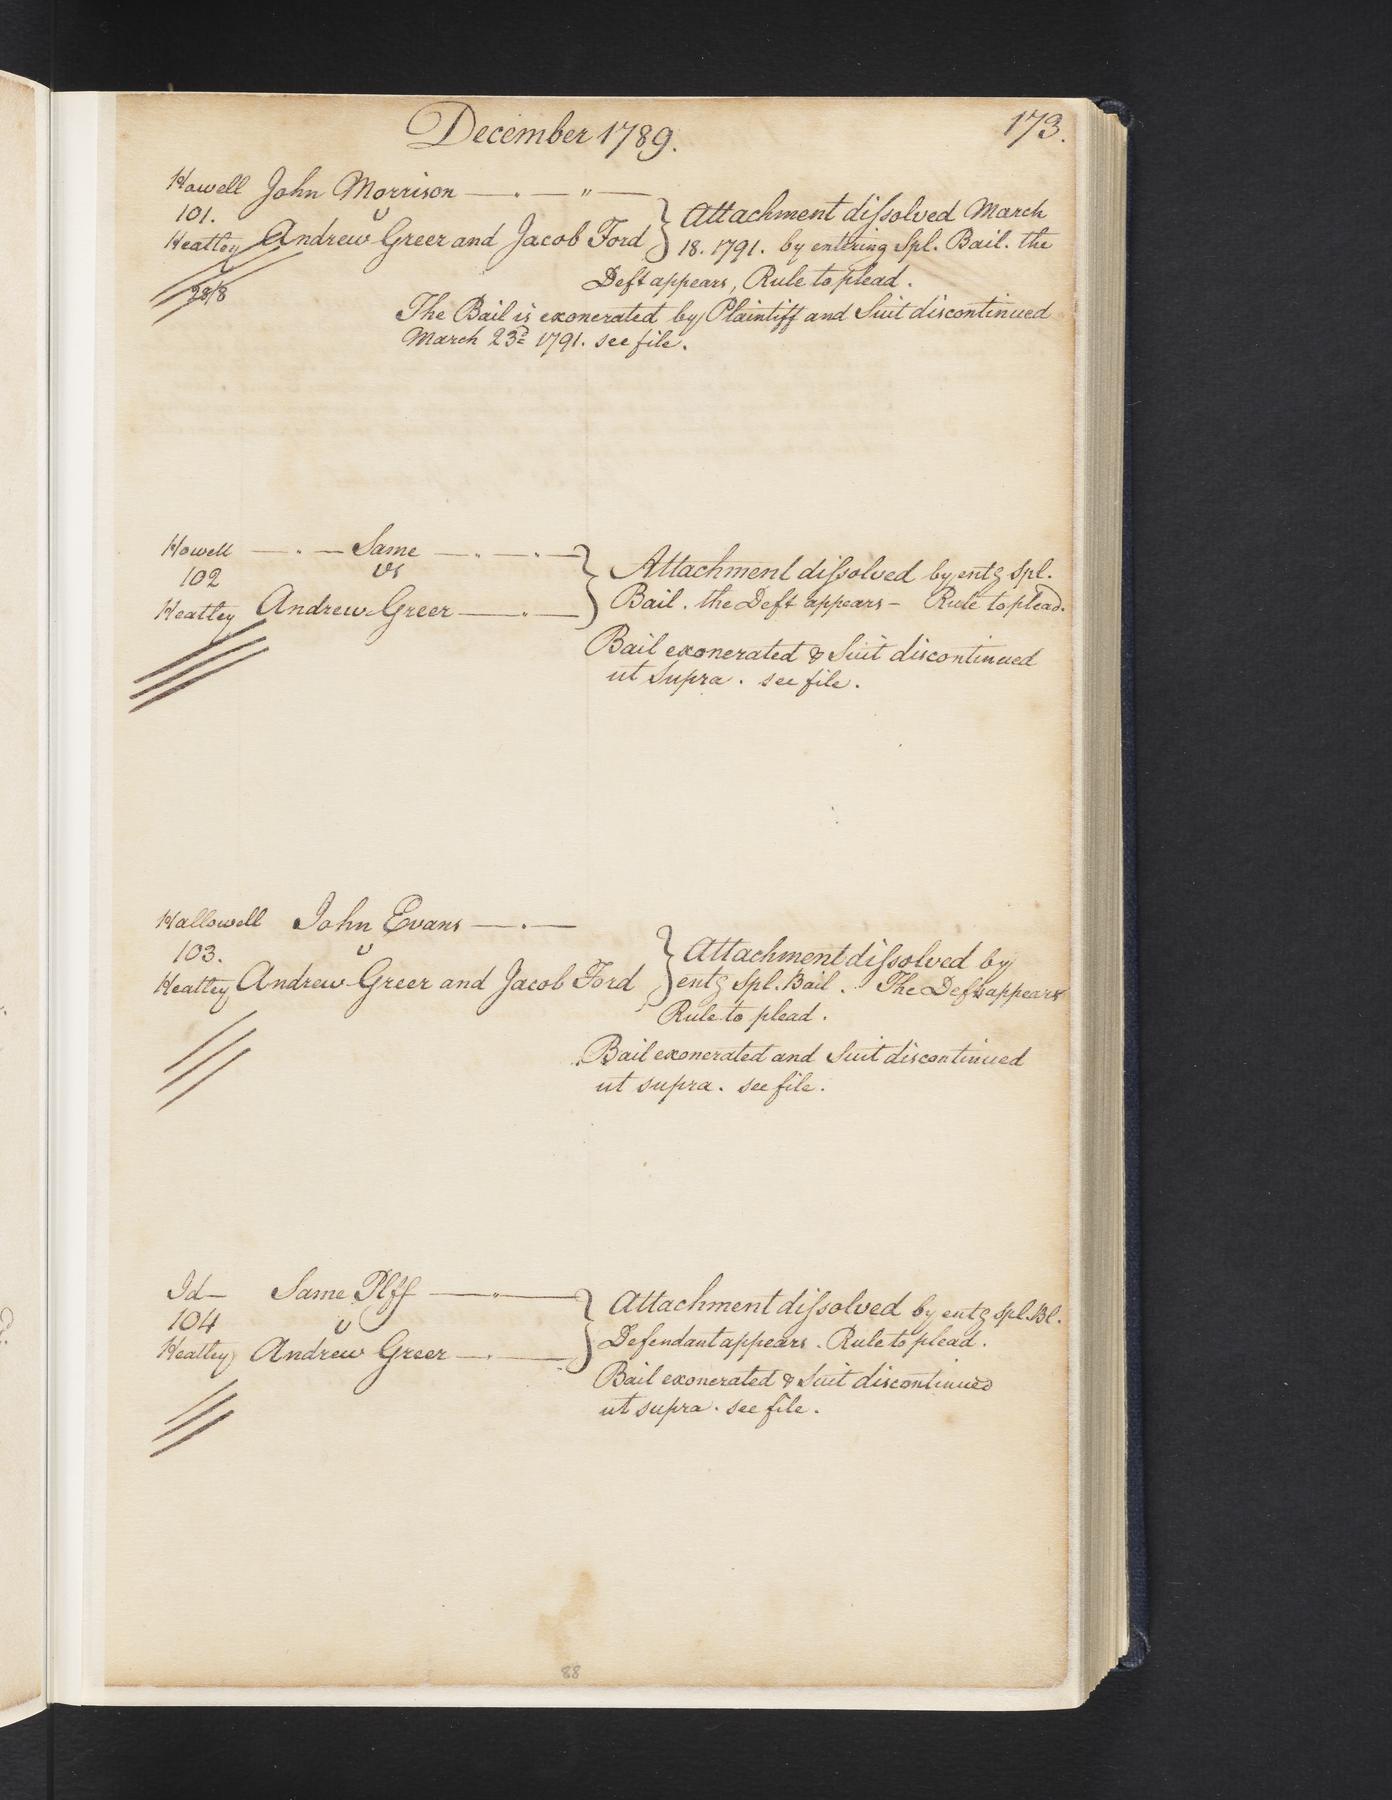 December 1789.
173.
Howell John Morrison
101. v
Heatley Andrew Greer and Jacob Ford
28/8
Attachment dissolved March
18. 1791. by entering Spl. Bail. the
Deft appears, Rule to plead.
The Bail is exonerated by Plaintiff and Suit discontinued
March 23d 1791. see file.
Howell Same
102 vs
Heatley Andrew Greer
Attachment dissolved by entg Spl.
Bail. the Deft appears – Rule to plead.
Bail exonerated & Suit discontinued
ut Supra. see file.
Hallowell John Evans
103. v
Heatley Andrew Greer and Jacob Ford
Attachment dissolved by
entg Spl. Bail. The Defts appears
Rule to plead.
Bail exonerated and Suit discontinued
ut supra. see file.
Id— Same Plff
104 v
Heatley Andrew Greer
Attachment dissolved by entg Spl. Bl.
Defendant appears. Rule to plead.
Bail exonerated & Suit discontinued
ut supra. see file.
88